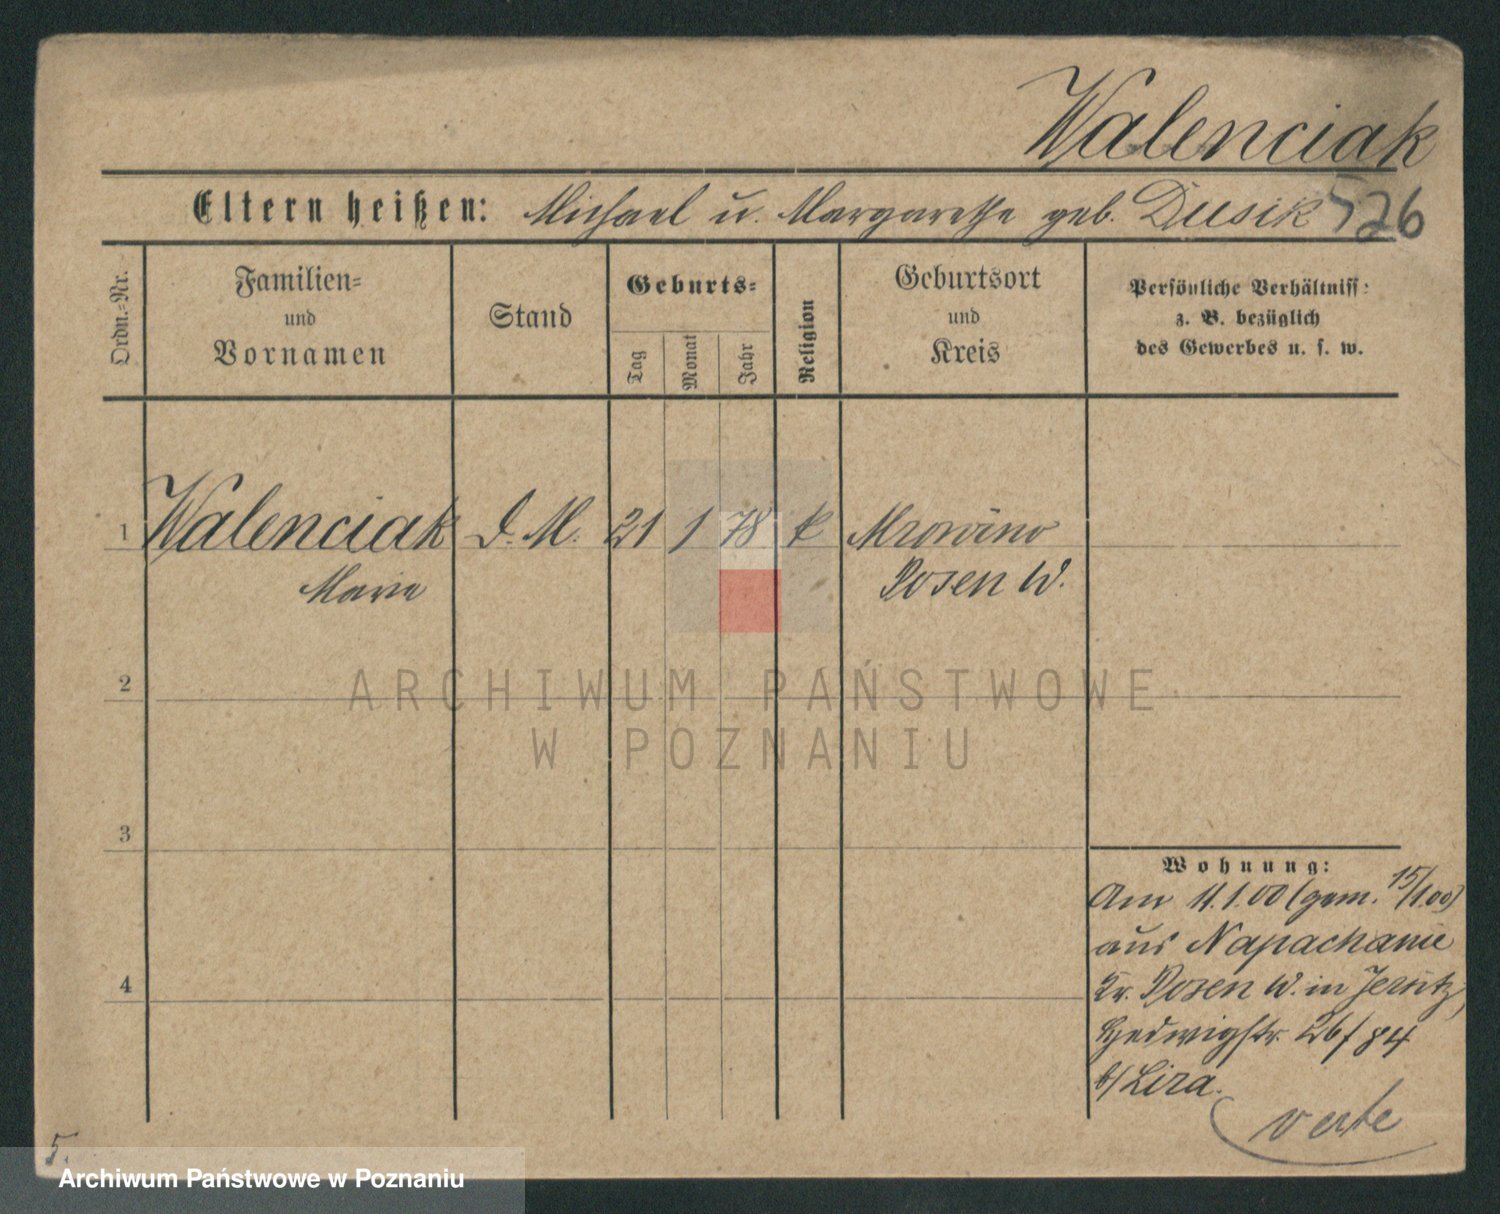 Walenciak
Eltern heißen: Michael u. Margarethe geb. Dusik 526
Ordn.-Nr.
Familien-
und
Vornamen
Stand
Geburts-
Tag
Monat
Jahr
Religion
Geburtsort
und
Kreis
Persönliche Verhältniss:
z. B. bezüglich
des Gewerbes u. s. w.
1 Walenciak D. M. 21 1 78 k Mrowino
Marie Posen W.
2
ARCHIWUM PAŃSTWOWE
W POZNANIU
3
Wohnung:
Am 11.1.00 (gem. 15/1.00)
aus Napachanie
Kr. Posen W. in Jersitz,
Hedwigstr. 26/84
b/ Lira.
4
verte
5.
Archiwum Państwowe w Poznaniu